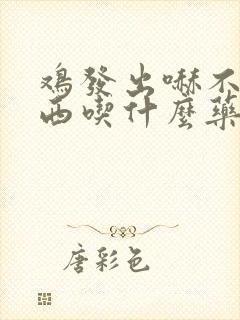 鸡發出嚇不
西喫什麼藥
唐彩色